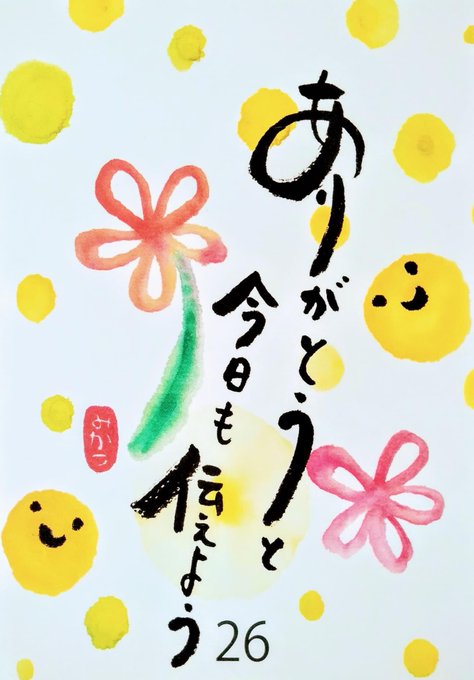 ありがとうと
今日も伝えよう
みかう
26